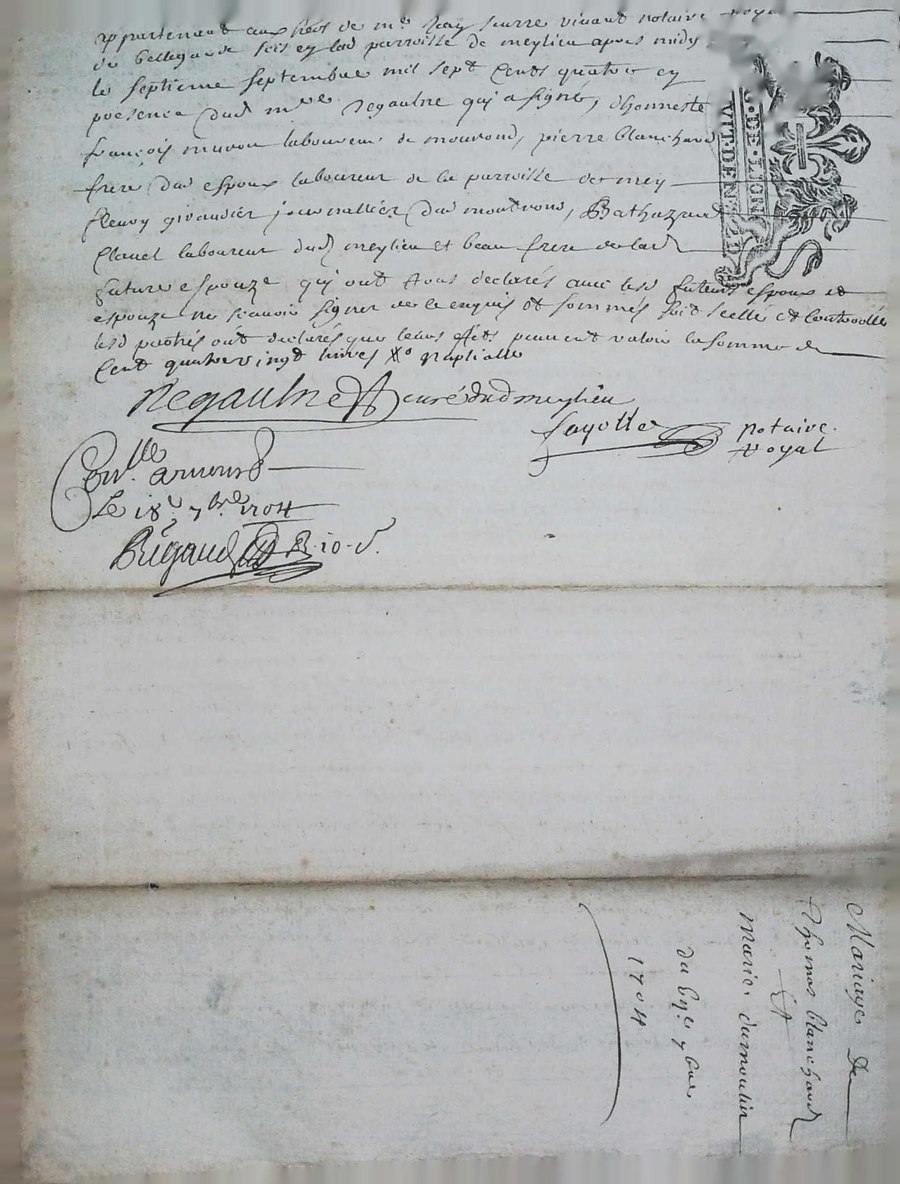 appartenant aux heoirs de me Jean seurre vivant notaire royal
de bellegarde scis en lad parroisse de meylieu apres midy
le septieme septembre mil sept cents quatre en
presence dud mre Regaulne qui a signé, d'honneste
françois muron laboureur de mouvond, pierre blanchard
frere dud espoux laboureur de la parroisse de mey
fleury giraudier journallier dud montrond, Bathazard
Clauel laboureur dud meylieu et beau frere de lad
future espouze qui ont tous declarés auec lesd futeurs espoux et
espouze ne scauoir signer de ce enquis et sommés soit scellé et controollé
lesd partiés ont declarés que leurs peuuent valoir la somme de
cent quatrevingt livres nuptialle
Regaulne curé dud meylieu
fayolle notaire
Royal
Con.lle
Le 18e 7bre 1704
Brigaud R. 10 s.
DE LION
VIT DEN 2D
Mariage De
Thomas blanchard
Et
Marie dumoulin
du 7bre
1704